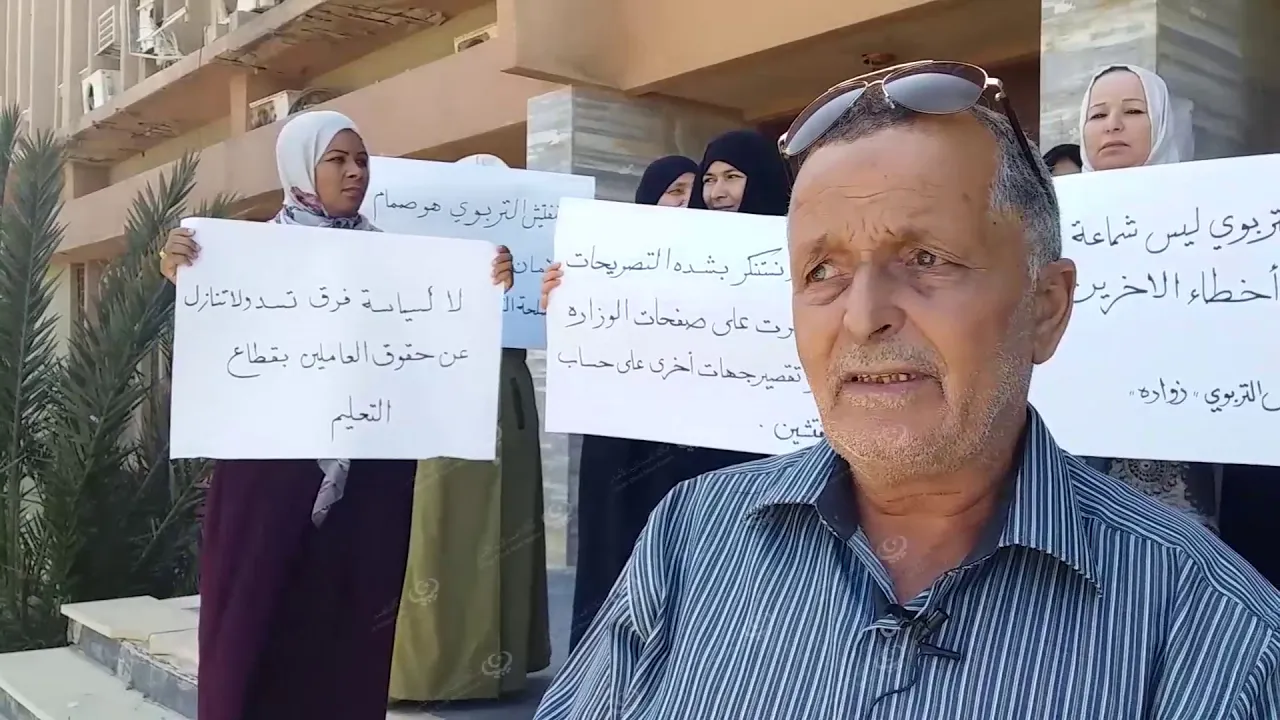 لا لسياسة فرق تسد ولا تنازل
عن حقوق العاملين بقطاع
التعليم
المفتش التربوي هو صمام
نستنكر بشده التصريحات
على صفحات الوزاره
تقصير جهات أخرى على حساب
ليس شماعة
أخطاء الاخرين
التربوي "زواره"